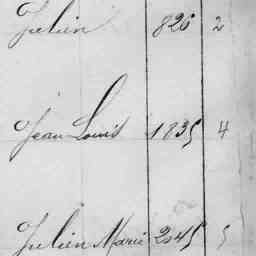 Julien 826 2
Jean Louis 1835 4
Julien Marie 2045 5